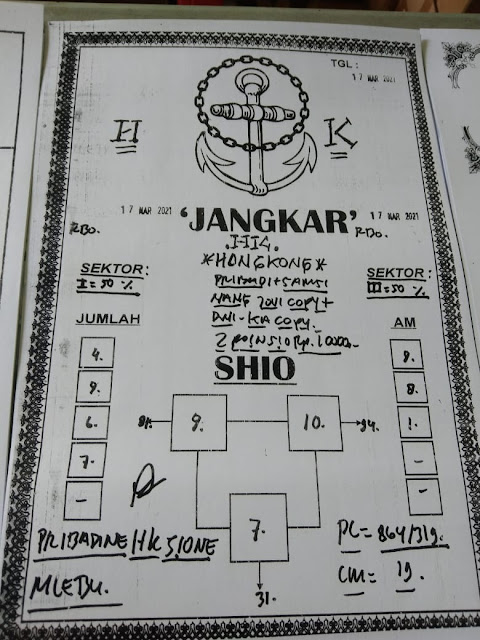 TGL :
17 MAR 2021
H K
17 MAR 2021 'JANGKAR' 17 MAR 2021
RBO. .HK. RBO.
*HONGKONG*
SEKTOR : SEKTOR :
I = 50 % III = 50 %
PRIBADI + SAMSI
NANG ZOVI COPY +
DWI - KIA COPY.
2 POIN SIO Rp. 10000.-
JUMLAH AM
SHIO
4. 9.
9. 8.
6. 1.
7. -
- -
9. 10.
7.
31.
PRIBADINE HK SIONE
MLEBU.
PC = 864/319.
CM = 19.